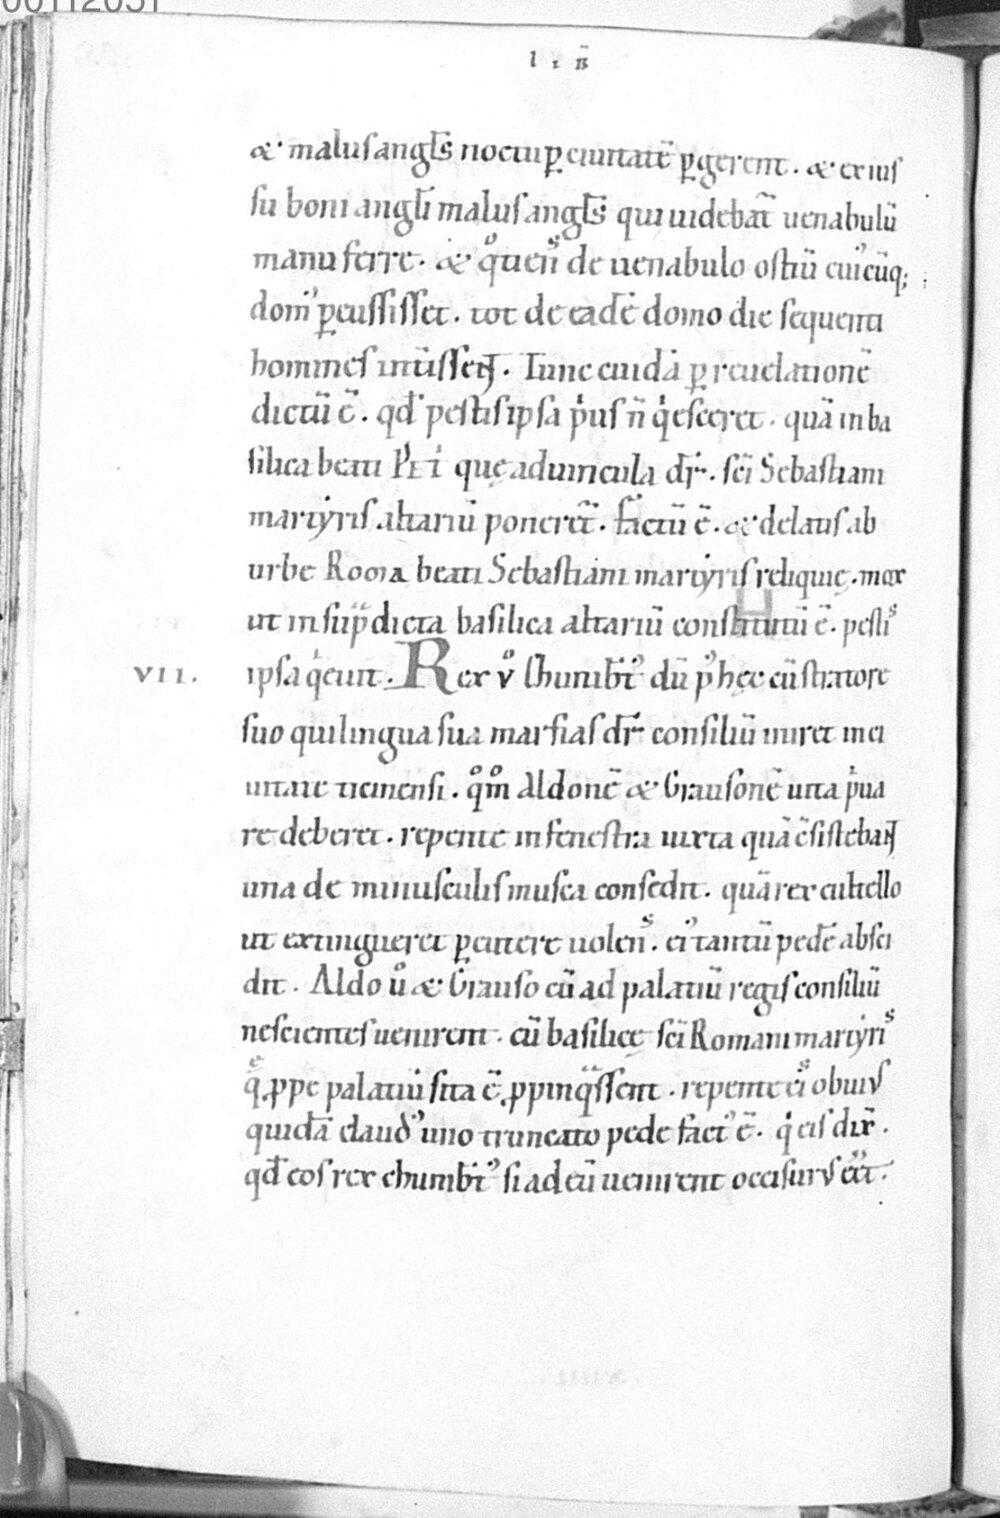 00112051
lib̃
& malus angl̃s noctu ꝑ ciuitatẽ ꝑgerent. & ex ius
su boni angl̃i malus angl̃s qui uidebat̃ uenabulũ
manu ferre. & qͦtienˢ de uenabulo ostiũ cuiꝰcũq;
domꝰ ꝑcussisset. tot de eadẽ domo die sequenti
homines intẽssent. Tunc cuidã ꝑ reuelationẽ
dictũ ẽ. qđ pestis ipsa pͥus ñ qͥesceret. quã in ba
silica beati Petͥ quę ad uincula dr̃. sc̃i Sebastiani
martyris altariũ poneret̃. factũ ẽ. & delatis ab
urbe Roma beati Sebastiani martyris reliquię. mox
ut in sup̃dicta basilica altariũ constitutũ ẽ. pestiˢ
VII. ipsa qͥeuit. Rex ṽͦ Chunib̃tꝰ dũ pꝰ hęc cũ stratore
suo qui lingua sua marfias dr̃ consiliũ iniret in ci
uitate ticinensi. qͦmͦ Aldonẽ & Grausonẽ uita pͥua
re deberet. repente in fenestra iuxta quã c̃sistebant
una de minusculis musca consedit. quã rex cultello
ut extingueret ꝑcutere uolenˢ. eiꝰ tantũ pedẽ absci
dit. Aldo uͦ & Grauso cũ ad palatiũ regis consiliũ
nescientes uenirent. cũ basilicę sc̃i Romani martyriˢ
q̃ ꝓpe palatiũ sita ẽ ꝓpinq̃ssent. repente eiˢ obuiꝰ
quidã claudꝰ uno truncato pede factꝰ ẽ. qͥ eis dix̃.
qđ eos rex chunib̃tꝰ si ad eũ uenirent occisurꝰ eẽt.